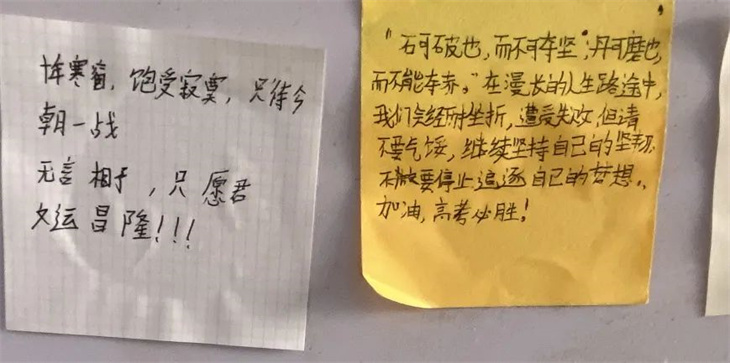 十年寒窗，饱受寂寞，只待今
朝一战
无言相于，只愿君
文运昌隆！！！
“石可破也，而不可夺坚”；丹可磨也，
而不能夺赤。”在漫长的人生路途中，
我们会经 挫折，遭受失败，但请
不要气馁，继续坚持自己的坚韧
不要停止追逐自己的梦想。
加油，高考必胜！